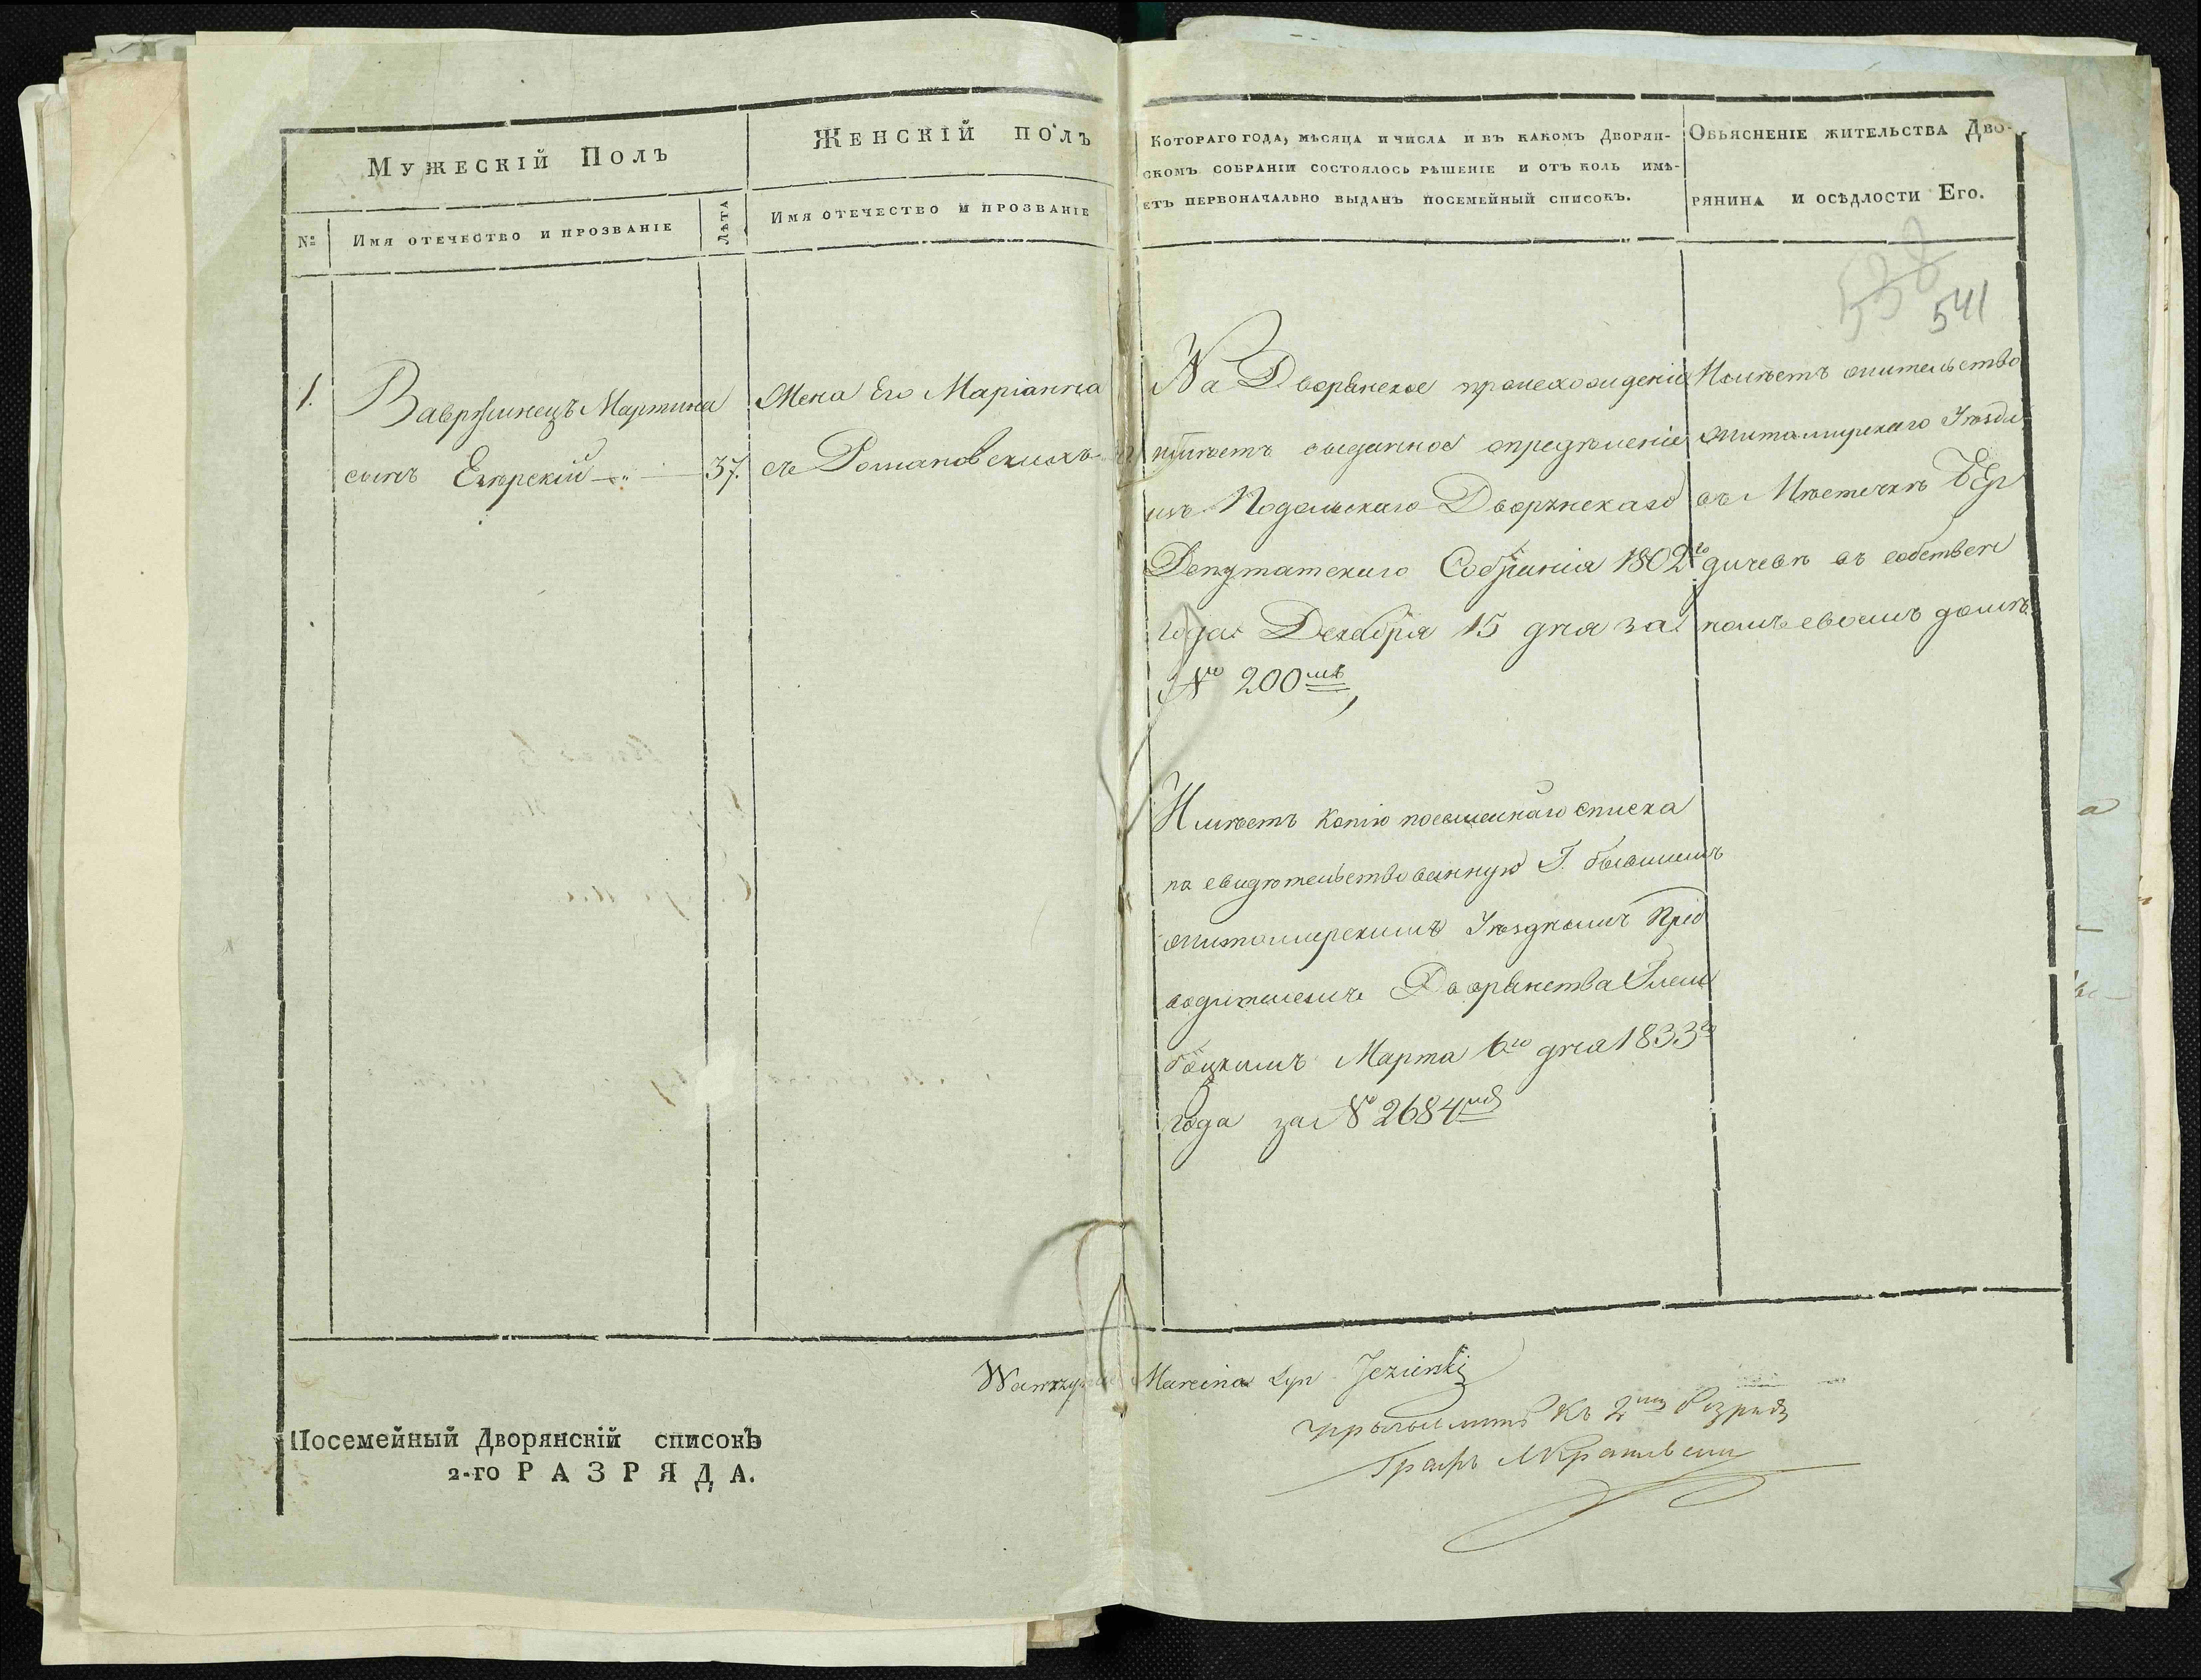 Мужескій Полъ
Женскій полъ
№
Имя отечество и прозваніе
Лѣта
Имя отечество и прозваніе
Котораго года, мѣсяца и числа и въ какомъ Дворян-
скомъ собраніи состоялось рѣшеніе и отъ коль имѣ-
етъ первоначально выданъ посемейный списокъ.
Обьясненіе жительства Дво-
рянина и осѣдлости Его.
538
541
1.
Вавржинецъ Мартина
сынъ Езерскій 37.
Жена Его Маріанна
съ Романовскихъ
На Дворянское происхожденіе
имѣетъ выданное опредѣленіе
изъ Подольскаго Дворянскаго
Депутатскаго Собранія 1802го
года Декабря 15 дня за
№ 200мъ,
Имѣетъ Копію посемейнаго списка
по свидѣтельствованную Г. бывшимъ
житомирскимъ Уѣзднымъ Пред
водителемъ Дворянства
Марта 6го дня 1833го
года за № 2684мъ
Имѣетъ жительство
житомирскаго Уѣзда
въ Мѣстечкѣ Бер
дичевѣ въ собствен
номъ своемъ домѣ.
Wawrzyniec Marcina Syn Jezierski
Къ 2му Розряду
Графъ
Посемейный Дворянскій списокъ
2-го РАЗРЯДА.